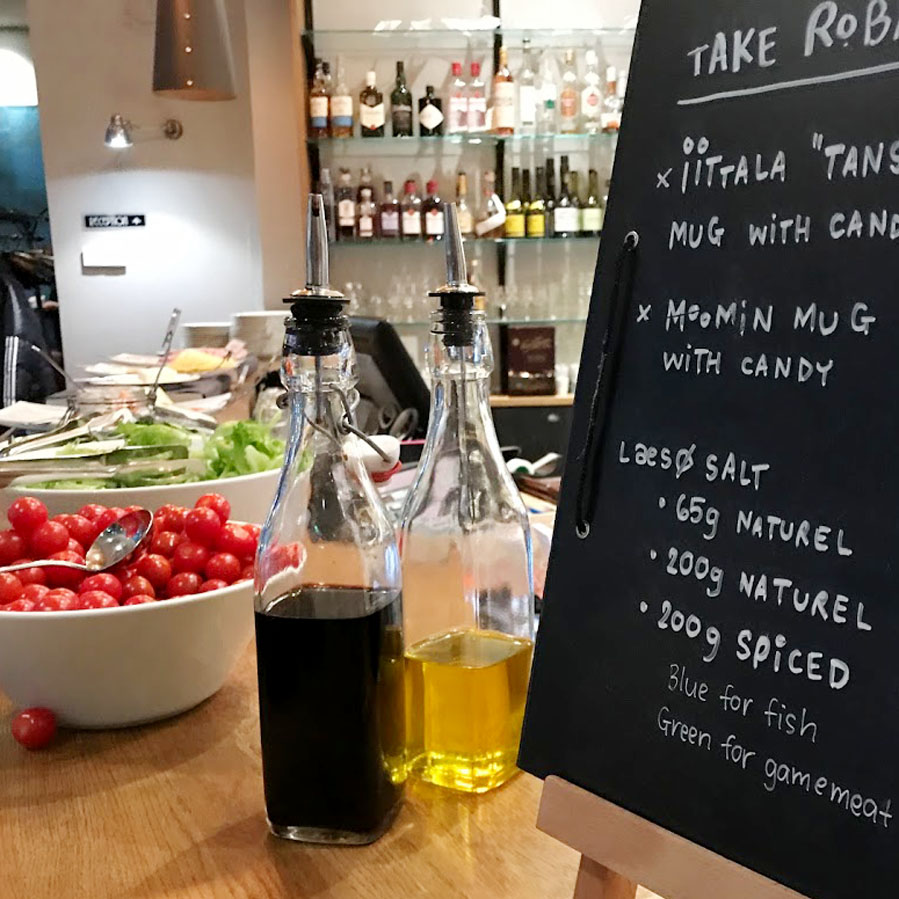 TAKE
x iiTTALA "TANS
MUG WITH CAND
x MOOMiN MUG
WITH CANDY
LaesØ SALT
• 65g NATUREL
• 200g NATUREL
• 200g SPiCED
Blue for fish
Green for gamemeat
RECEPTION